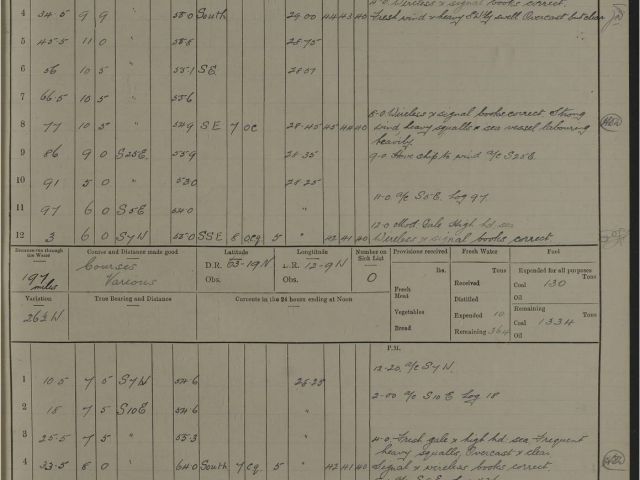 4 34.5 9 9 " 55.0 South 29.00 44 43 40 Fresh wind & heavy swell. Overcast but clear
5 45.5 11 0 " 55.8 28.75
6 56 10 5 " 55.1 SE 28.57
7 66.5 10 5 " 55.6
8.0 Wireless & signal books correct. Strong
8 77 10 5 " 54.9 SE 7 oc 28.45 45 44 40 wind, heavy squalls & sea vessel labouring
heavily
9 86 9 0 S25E 55.9 28.35 9.0 Hove ship to wind a/c S25E.
10 91 5 0 " 53.0 28.25
11.0 a/c S5E. Log 97
11 97 6 0 S5E 54.0 "
12.0 Mod. Gale High hd. sea
12 3 6 0 SyW 55.0 SSE 8 ocq 5 " 42 41 40 Wireless & signal books correct
Distance run through the Water
Course and Distance made good
Latitude
Longitude
Number on Sick List
Provisions received
Fresh Water
Fuel
197 miles
Courses
Various
D.R. 63-19N
Obs.
D.R. 12-9N
Obs.
0
lbs.
Fresh Meat
Vegetables
Bread
Tons
Received
Distilled
Expended 10
Remaining 364
Expended for all purposes
Tons
Coal 130
Oil
Remaining
Coal 1334
Tons
Oil
Variation
True Bearing and Distance
Currents in the 24 hours ending at Noon
26¾W
P.M.
12-20, a/c SyW.
1 10.5 7 5 SyW 54.6 28.25
2-00 a/c S10E Log 18
2 18 7 5 S10E 54.6 "
3 25.5 7 5 " 55.3 "
4.0 Fresh gale & high hd. sea. Frequent
heavy squalls, Overcast & clear
4 33.5 8 0 " 64.0 South 7 cq. 5 " 42 41 40 Signal & wireless books correct.